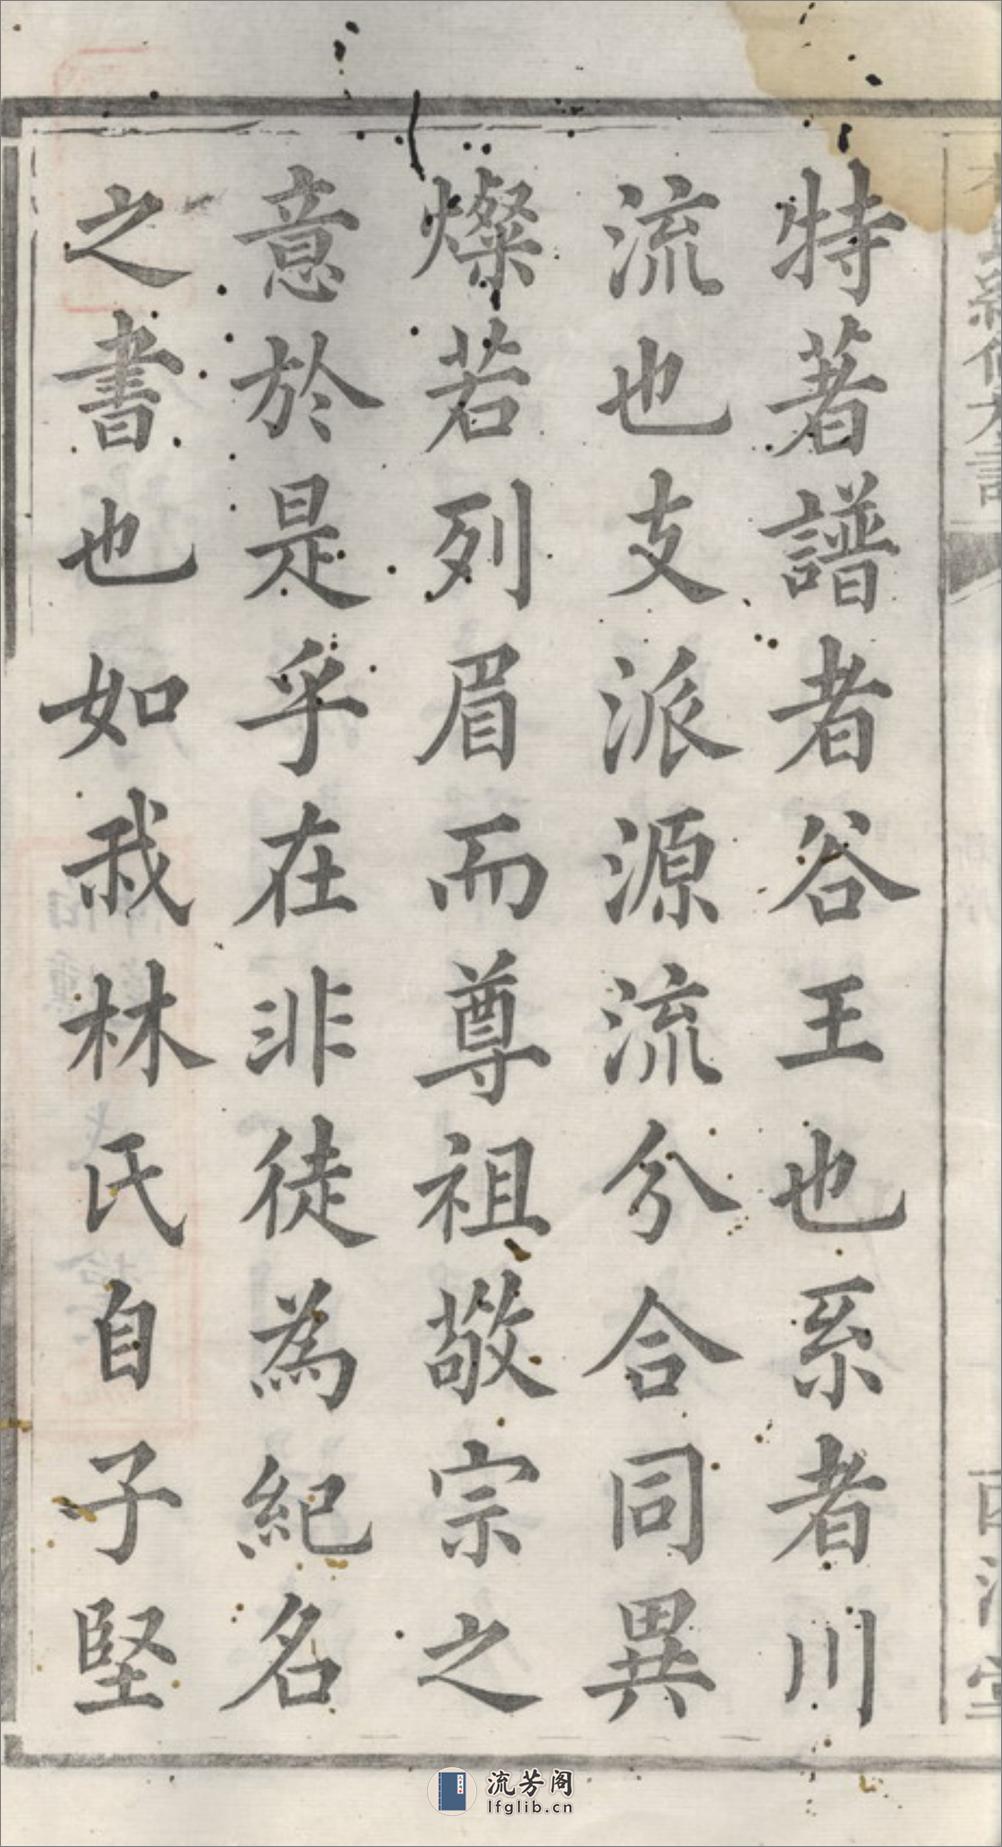 特著譜者谷王也系者川
流也支派源流分合同異
燦若列眉而尊祖敬宗之
意於是乎在非徒為紀名
之書也如我林氏自子堅
流芳阁
lfglib.cn